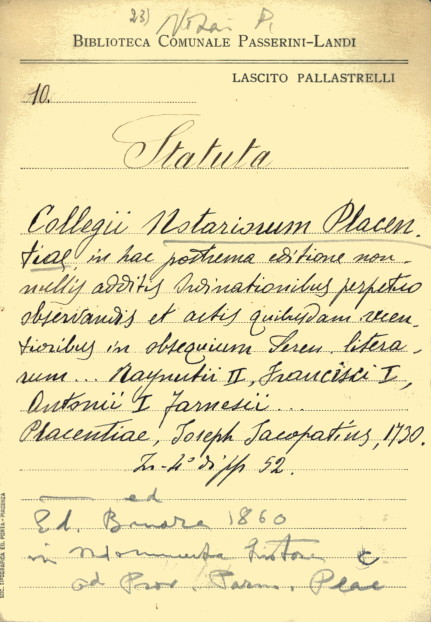 23) Notai P.
BIBLIOTECA COMUNALE PASSERINI-LANDI
LASCITO PALLASTRELLI
10.
Statuta
Collegii Notariorum Placen-
tiae, in hac postrema editione non-
nullis additis Ordinationibus perpetuo
observandis et actis quibusdam recen-
tioribus in obsequium Seren. litera-
rum... Raynutii II, Francisci I,
Antonii I Farnesii...
Placentiae, Joseph Jacopatius, 1730.
In-4° di pp 52.
— ed
Ed. 1860
in Monumenta
ad Prov. Parm. Plac
SOC. TIPOGRAFICA ED. PORTA - PIACENZA